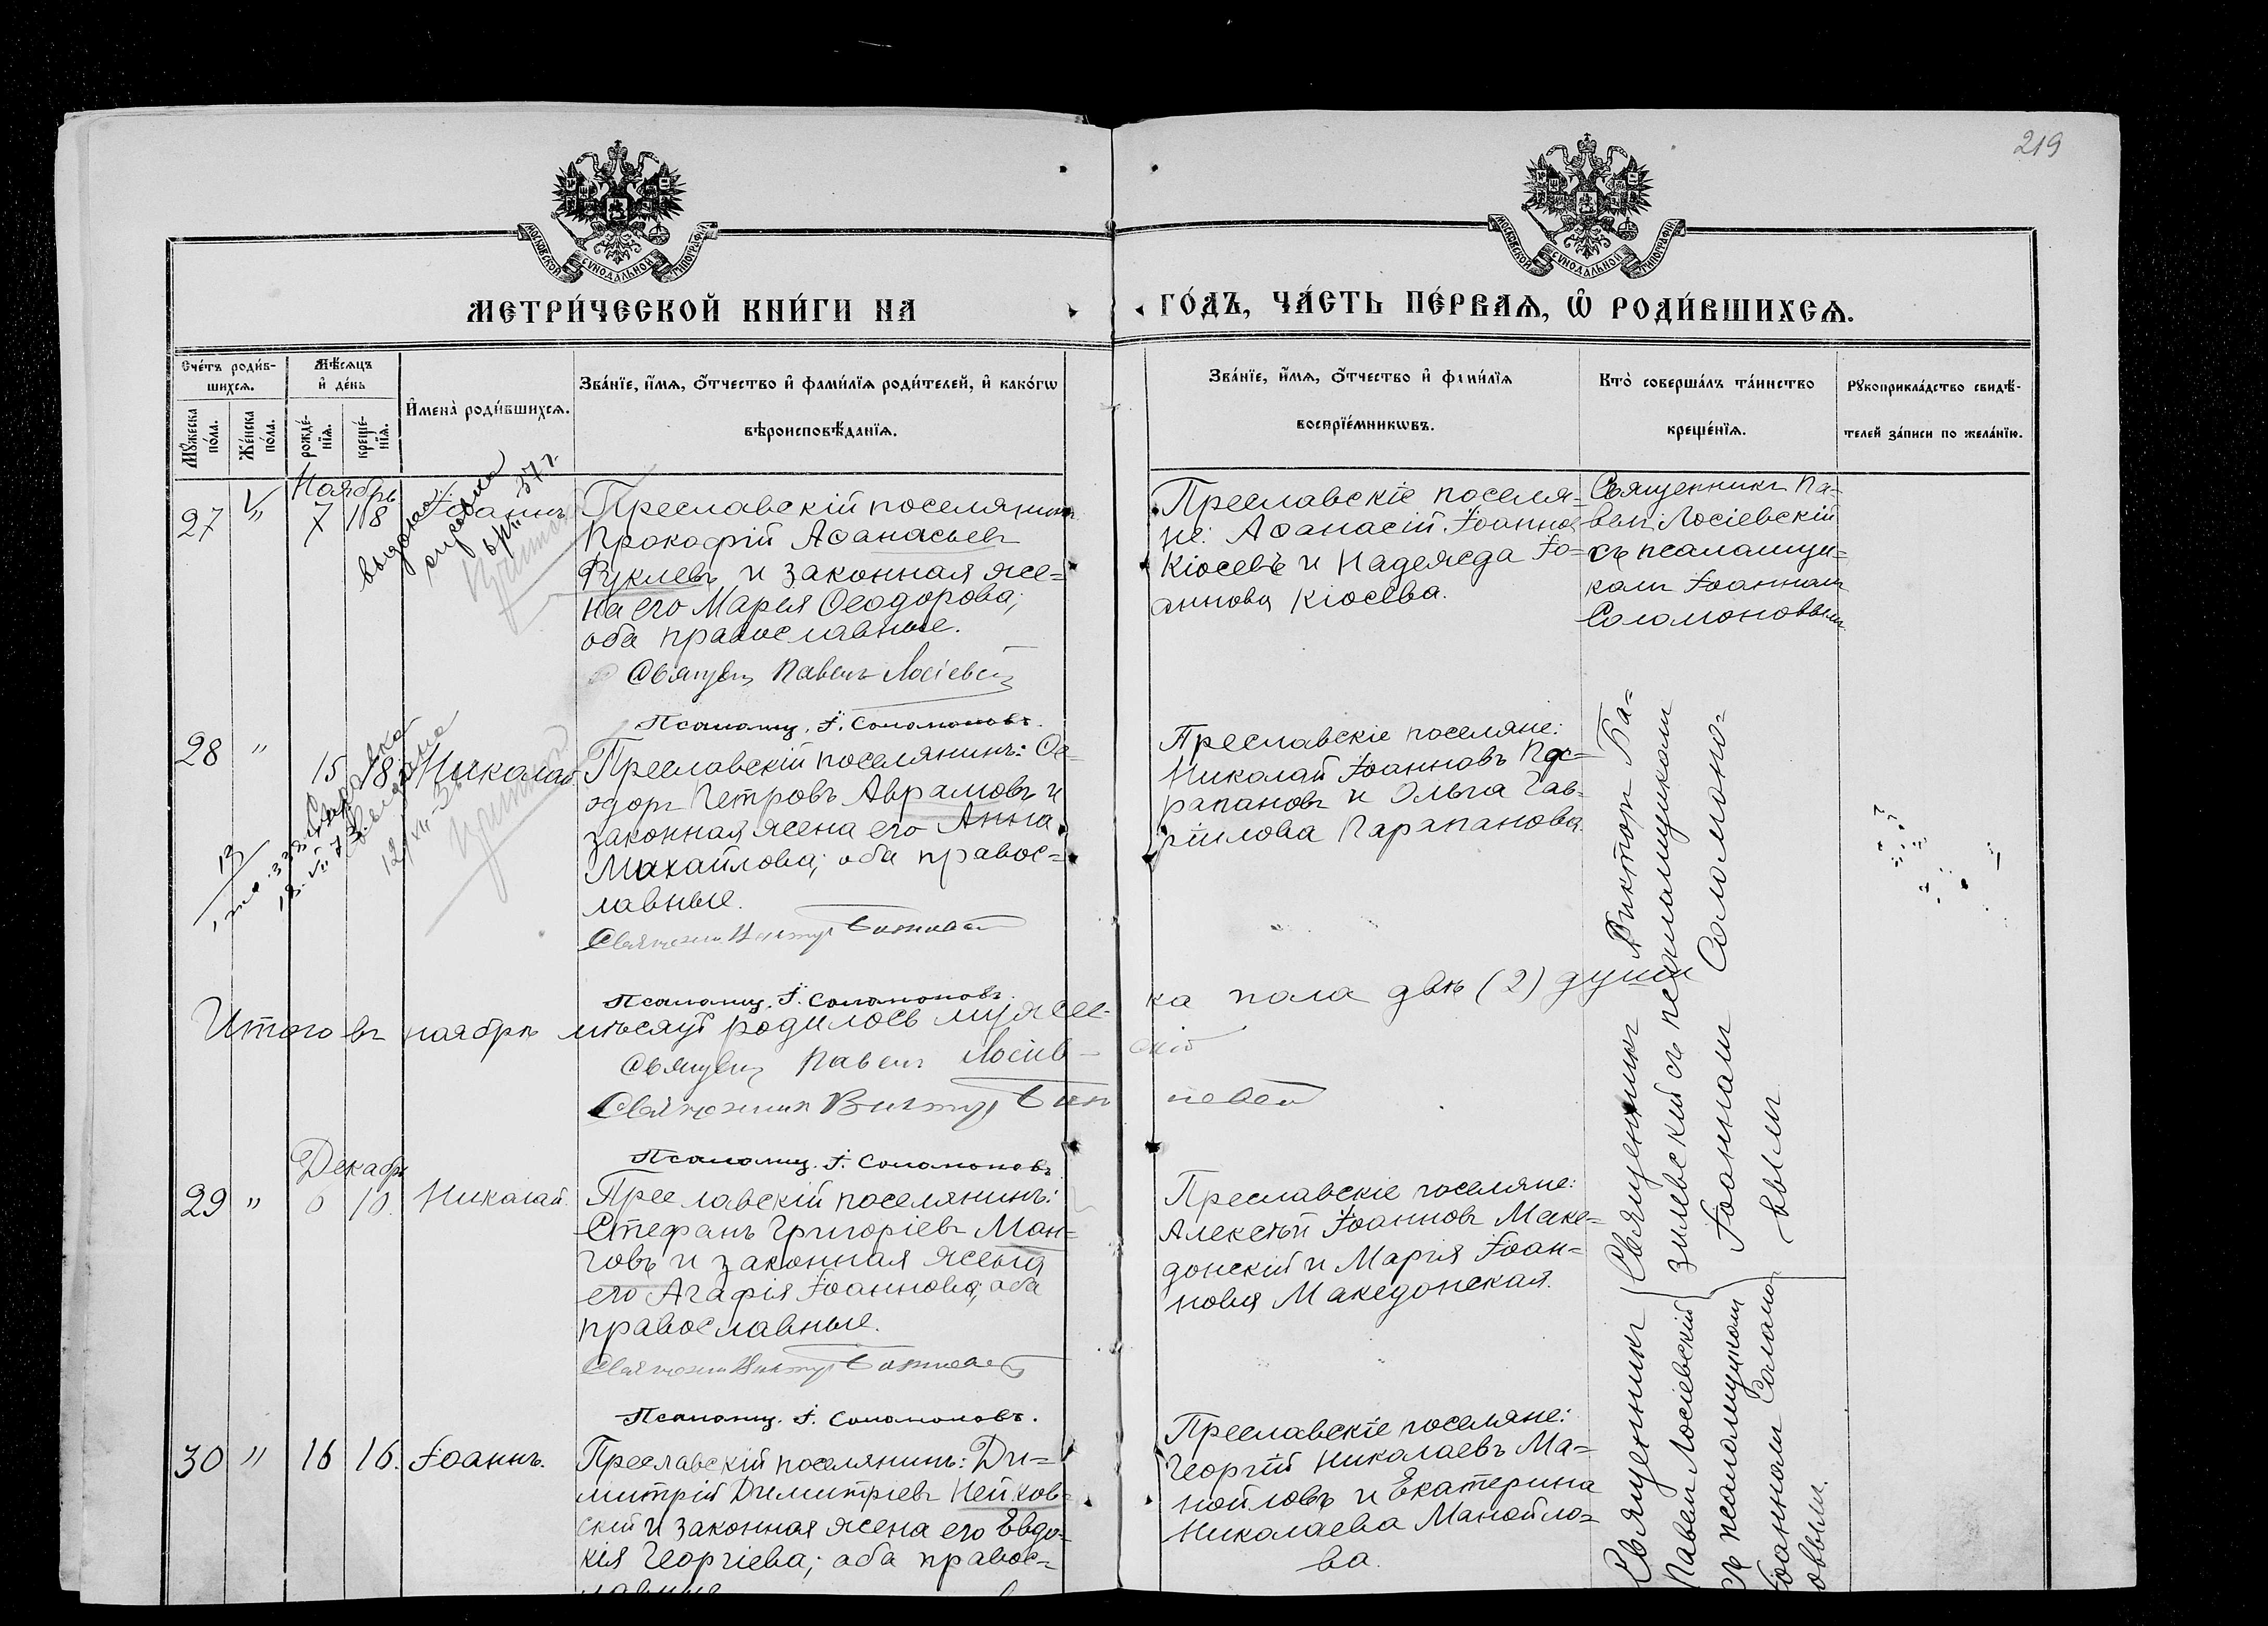 219
МОСКОВСКОЙ СѴНОДАЛЬНОЙ ТИПОГРАФІИ
МОСКОВСКОЙ СѴНОДАЛЬНОЙ ТИПОГРАФІИ
МЕТРИ́ЧЕСКОЙ КНИ́ГИ НА
ГО́ДЪ, ЧА́СТЬ ПЕ́РВАѦ, Ѽ РОДИ́ВШИХСѦ.
Сче́тъ роди́в-
шихсѧ.
Мѣ́сѧцъ
и҆ де́нь
Мꙋ́жеска
по́ла.
Же́нска
по́ла.
рожде́-
нїѧ.
креще́-
нїѧ.
И҆мена̀ роди́вшихсѧ.
Зва́нїе, и҆́мѧ, ѻ҆́тчество и҆ фами́лїѧ роди́телей, и҆ како́гѡ
вѣроисповѣ́данїѧ.
Зва́нїе, и҆́мѧ, ѻ҆́тчество и҆ фами́лїѧ
воспрїе́мникѡвъ.
Кто̀ соверша́лъ та́инство
креще́нїѧ.
Рꙋкоприкла́дство свидѣ́-
телей за́писи по жела́нїю.
Ноябрь
27 " 7 18 Іоаннъ
Преславскій поселянинъ
Прокофій Аѳанасьевъ
Фуклевъ и законная же=
на его Марія Ѳеодорова;
оба православные.
Священ Павелъ Лосіевскій
Псаломщ. І. Соломоновъ.
Преславскіе поселя=
не: Аѳанасій Іоаннов
Кіосевъ и Надежда Іо=
аннова Кіосева.
Священникъ Па=
велъ Лосіевскій
съ псаломщи=
комъ Іоанномъ
Соломоновымъ
выдана
28 " 15 18 Николай
Преславскій поселянинъ: Ѳе=
одоръ Петровъ Аврамовъ и
законная жена его Анна
Михайлова; оба правос=
лавные.
Священник Виктор
Псаломщ. І. Соломоновъ.
Преславскіе поселяне:
Николай Іоанновъ Па=
рапановъ и Ольга Гав=
ріилова Парапанова.
Священникъ Викторъ Ба=
зилевскій съ псаломщикомъ
Іоанномъ Соломоно-
вымъ
Итого въ ноябрѣ мѣсяцѣ родилось мужес-
ка пола двѣ (2) души
Священ Павелъ Лосіев-
скій
Священник Виктор
Псаломщ. І. Соломоновъ
Декабрь
29 " 6 10. Николай
Преславскій поселянинъ:
Стефанъ Григоріевъ Ман=
говъ и законная жена
его Агафія Іоаннова; оба
православные.
Священник Виктор
Псаломщ. І. Соломоновъ.
Преславскіе поселяне:
Алексѣй Іоанновъ Маке=
донскій и Марія Іоан=
нова Македонская.
30 " 16 16. Іоаннъ.
Преславскій поселянинъ: Ди=
митрій Димитріевъ Нейков=
скій и законная жена его Евдо=
кія Георгіева; оба правос=
лавные
Преславскіе поселяне:
Георгій Николаевъ Ма=
нойловъ и Екатерина
Николаева Манойло=
ва.
Священникъ
Павелъ Лосіевскій
съ псаломщикомъ
Іоанномъ Соломо-
новымъ.